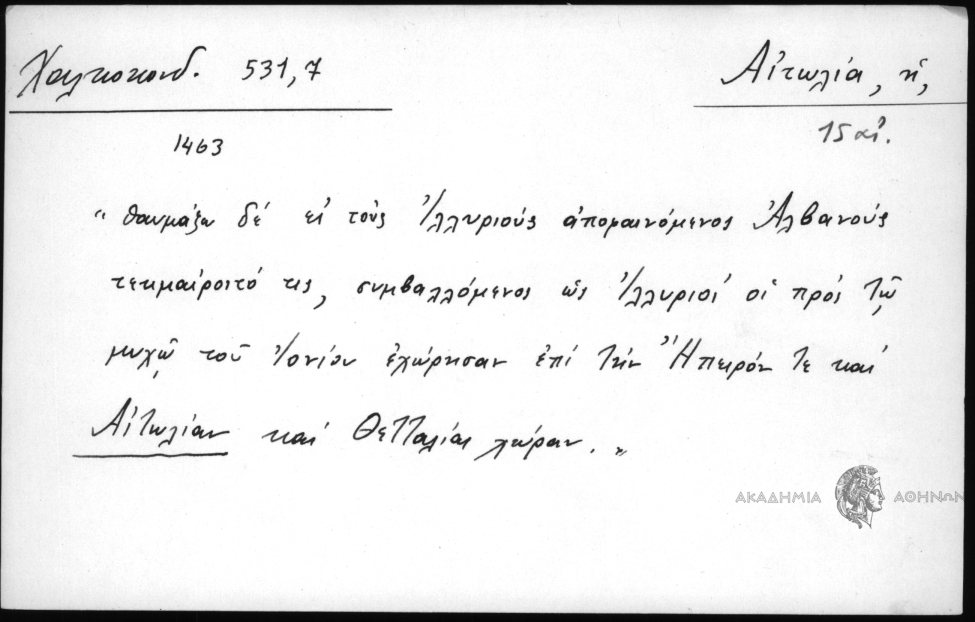 Χαλκοκονδ. 531,7
Αἰτωλία, ἡ,
1463
15 αἰ.
"θαυμάζω δέ εἰ τούς Ἰλλυριούς ἀποφαινόμενος Ἀλβανούς
τεκμαίροιτό τις, συμβαλλόμενος ὡς Ἰλλυριοί οἱ πρός τῷ
μυχῷ τοῦ Ἰονίου ἐχώρησαν ἐπί τήν Ἤπειρόν τε καί
Αἰτωλίαν καί Θετταλίας χώραν."
ΑΚΑΔΗΜΙΑ ΑΘΗΝΩΝ